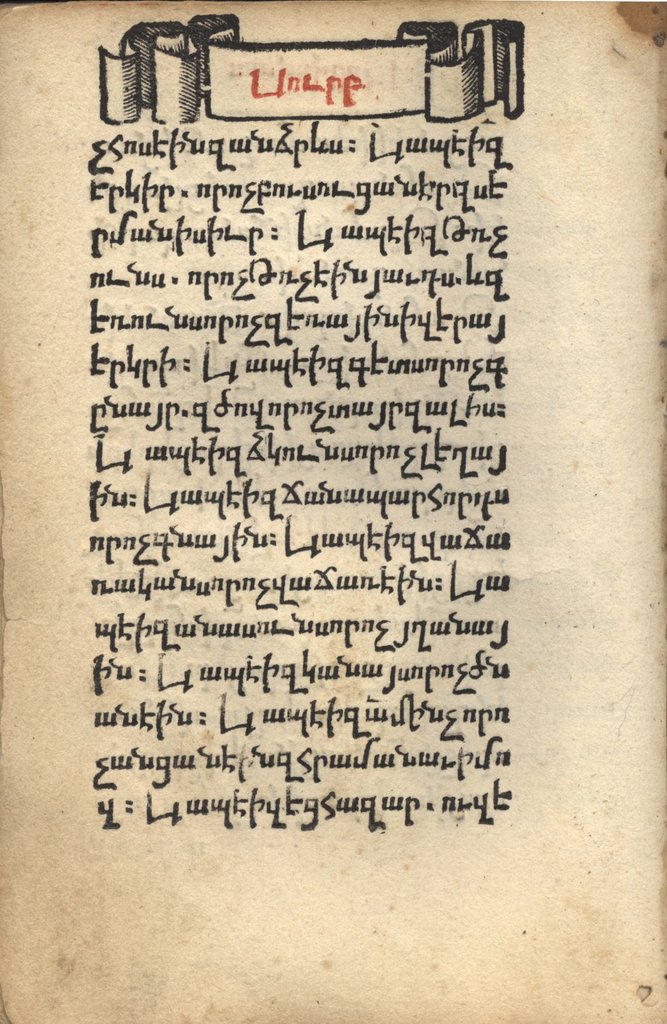 Սուրբ
չհոսէինզանձրևս։ Կապէիզ
երկիր. որոչբուսուցանէրզսե
րմանիսիւր։ Կապէիզթռչ
ունս. որոչթռչէինյաւդս. ևզ
եռունսորոչզեռայինիվերայ
երկրի։ Կապէիզգետսորոչգ
ընայր. զծովորոչտայրզալիս։
Կապէիզձկունսորոչլեղայ
ին։ Կապէիզճանապարհորդս
որոչգնային։ Կապէիզվաճա
ռականսորոչվաճառէին։ Կա
պէիզանասունսորոչյղանայ
ին։ Կապէիզկանայսորոչծն
անէին։ Կապէիզամինչորո
չանցանէինզհրամանաւիմո
վ։ Կապէիվեցհազար. ուվե